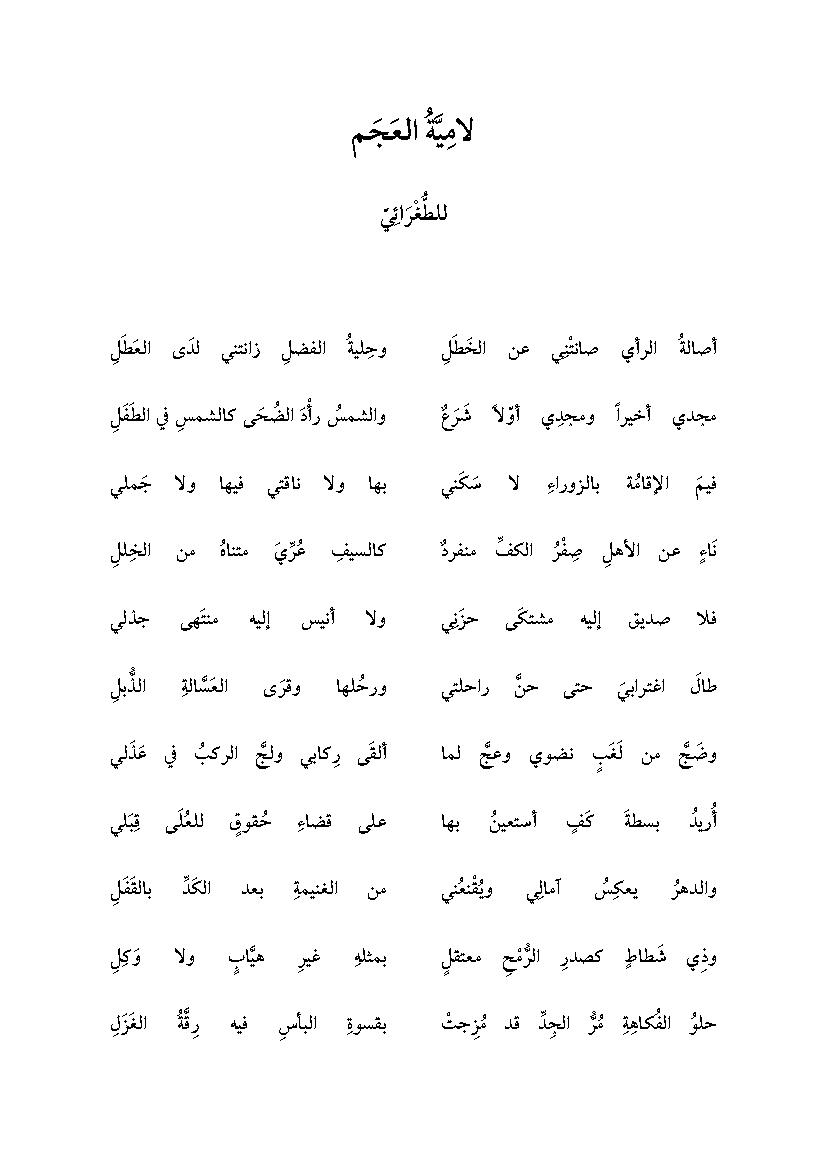 لامِيَّةُ العَجَم
للطُّغْرَائِيّ
أصالةُ الرأي صانتْنِي عن الخَطَلِ وحِليةُ الفضلِ زانتني لدَى العَطَلِ
مجدي أخيراً ومجدِي أوّلاً شَرَعٌ والشمسُ رأْدَ الضُحَى كالشمسِ في الطَفَلِ
فيمَ الإقامُة بالزوراءِ لا سَكَني بها ولا ناقتي فيها ولا جَملي
نَاءٍ عن الأهلِ صِفْرُ الكفِّ منفردٌ كالسيفِ عُرِّيَ متناهُ من الخِللِ
فلا صديق إليه مشتكَى حزَنِي ولا أنيس إليه منتَهى جذلي
طالَ اغترابيَ حتى حنَّ راحلتي ورحُلها وقرَى العَسَّالةِ الذُّبلِ
وضَجَّ من لَغَبٍ نضوي وعجَّ لما ألقَى رِكابي ولجَّ الركبُ في عَذَلي
أُريدُ بسطةَ كَفٍ أستعينُ بها على قضاءِ حُقوقٍ للعُلَى قِبَلي
والدهرُ يعكِسُ آمالِي ويُقْنعُني من الغنيمةِ بعد الكَدِّ بالقَفَلِ
وذِي شَطاطٍ كصدرِ الرُّمْحِ معتقلٍ بمثلهِ غيرِ هيَّابٍ ولا وَكِلِ
حلوُ الفُكاهِةِ مُرُّ الجِدِّ قد مُزِجتْ بقسوةِ البأسِ فيه رِقَّةُ الغَزَلِ